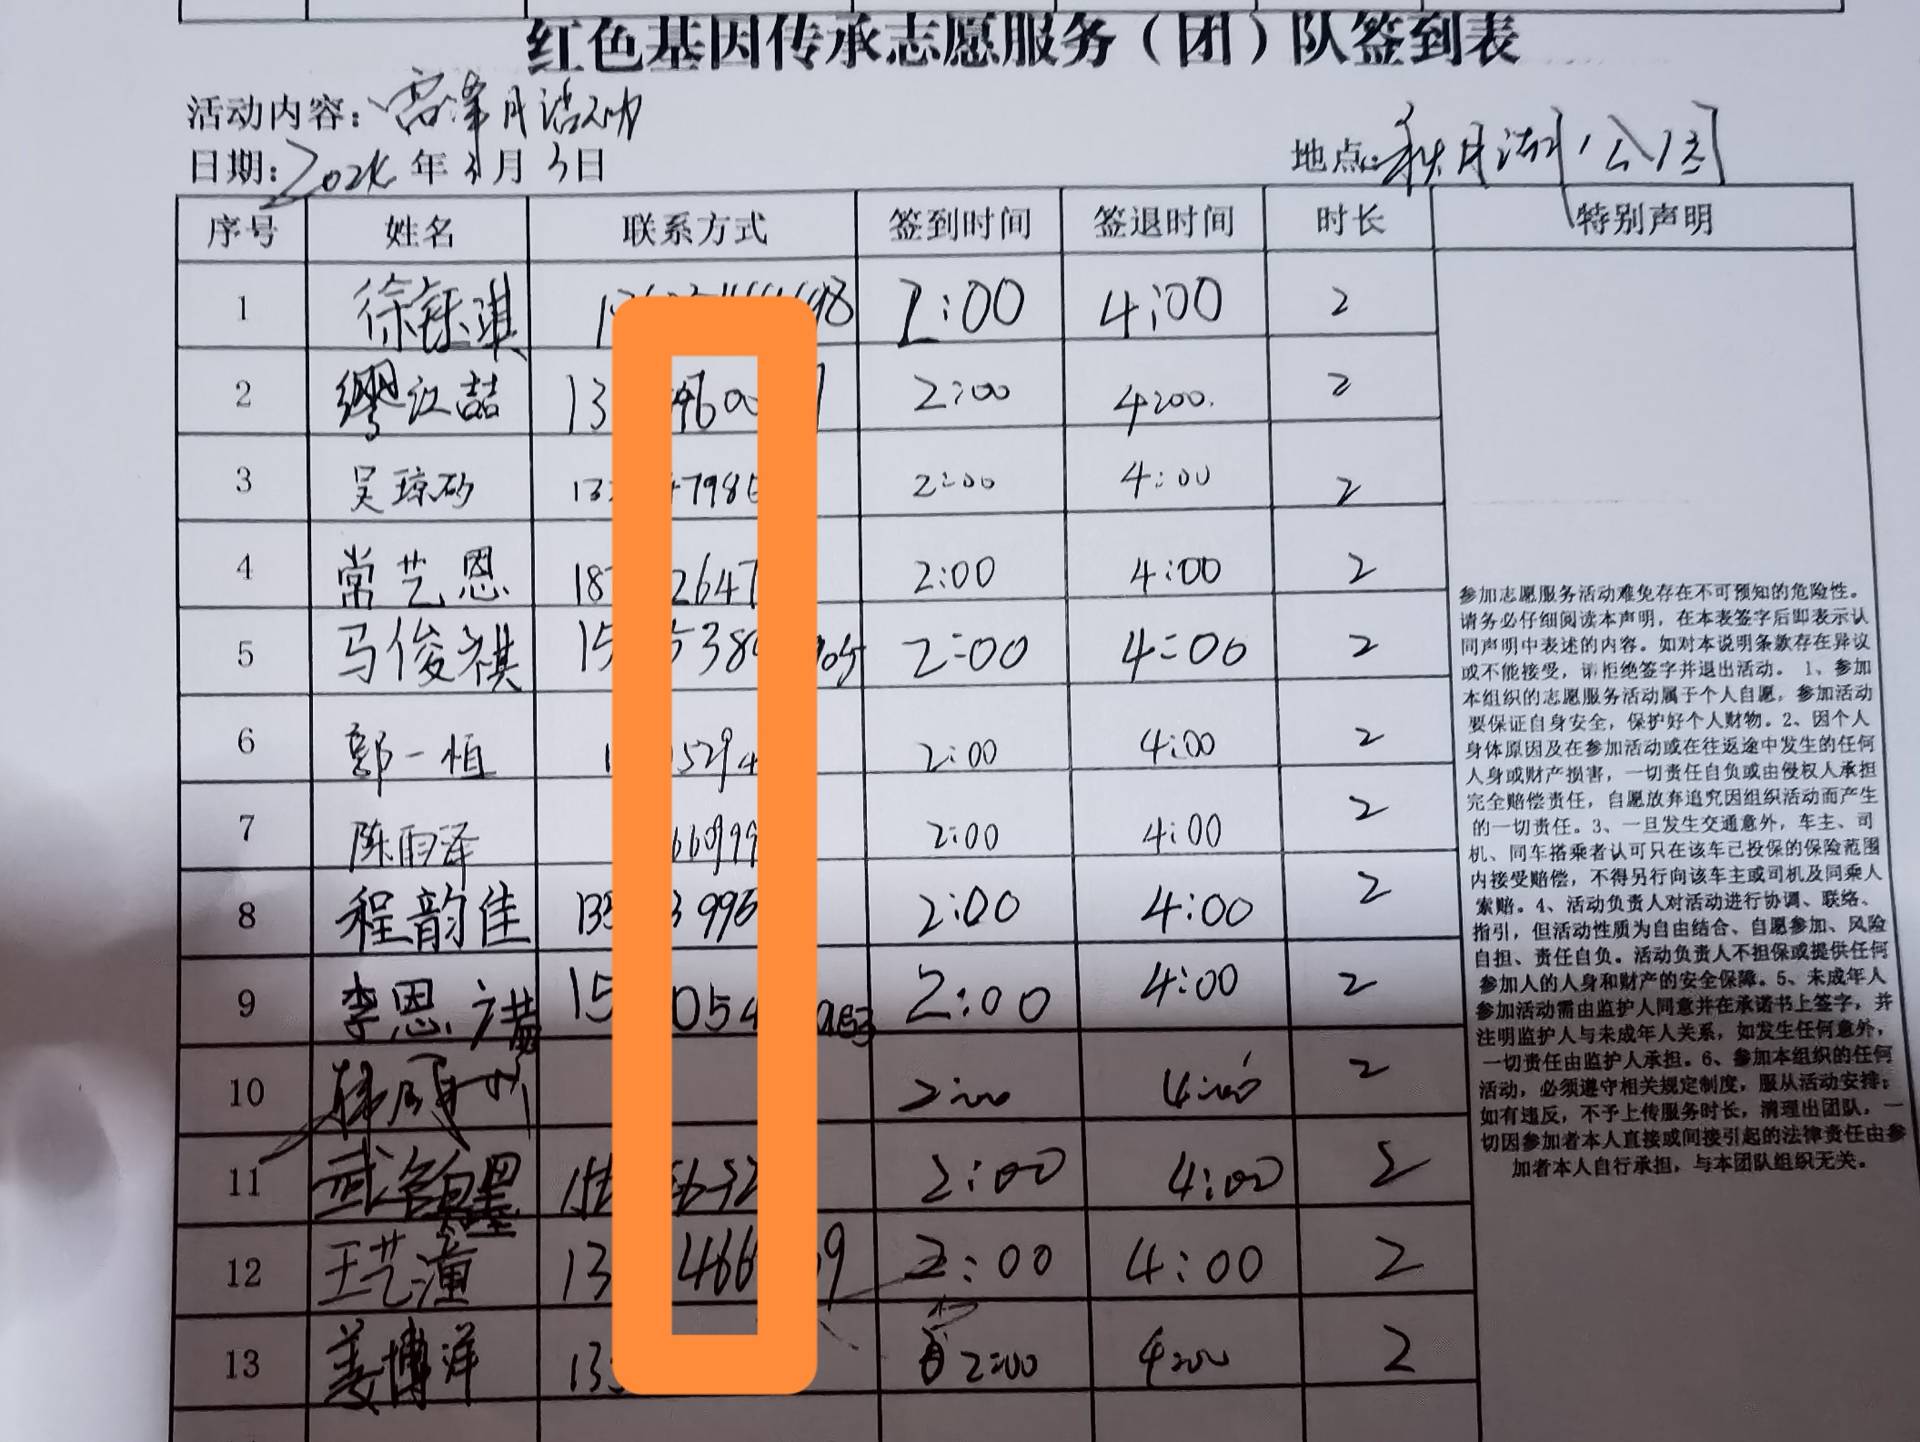 红色基因传承志愿服务（团）队签到表
活动内容：雷锋月活动
日期：2024年3月3日 地点：秋月湖公园
序号 姓名 联系方式 签到时间 签退时间 时长 特别声明
1 徐钰淇 2:00 4:00 2
2 缪江喆 13 960 2:00 4:00 2
3 吴琼砂 13 798 2:00 4:00 2
4 常艺恩 18 2647 2:00 4:00 2
5 马俊祺 15 538 2:00 4:00 2
6 郭一恒 1 529 2:00 4:00 2
7 陈雨泽 66099 2:00 4:00 2
8 程韵佳 135 3995 2:00 4:00 2
9 李恩 15 054 2:00 4:00 2
10 2:00 4:00 2
11 武 2:00 4:00 2
12 王艺潼 13 466 9 2:00 4:00 2
13 姜博洋 13 2:00 4:00 2
参加志愿服务活动难免存在不可预知的危险性。
请务必仔细阅读本声明，在本表签字后即表示认
同声明中表述的内容。如对本说明条款存在异议
或不能接受，请拒绝签字并退出活动。 1、参加
本组织的志愿服务活动属于个人自愿，参加活动
要保证自身安全，保护好个人财物。2、因个人
身体原因及在参加活动或在往返途中发生的任何
人身或财产损害，一切责任自负或由侵权人承担
完全赔偿责任，自愿放弃追究因组织活动而产生
的一切责任。3、一旦发生交通意外，车主、司
机、同车搭乘者认可只在该车已投保的保险范围
内接受赔偿，不得另行向该车主或司机及同乘人
索赔。4、活动负责人对活动进行协调、联络、
指引，但活动性质为自由结合、自愿参加、风险
自担、责任自负。活动负责人不担保或提供任何
参加人的人身和财产的安全保障。5、未成年人
参加活动需由监护人同意并在承诺书上签字，并
注明监护人与未成年人关系，如发生任何意外，
一切责任由监护人承担。6、参加本组织的任何
活动，必须遵守相关规定制度，服从活动安排；
如有违反，不予上传服务时长，清理出团队，一
切因参加者本人直接或间接引起的法律责任由参
加者本人自行承担，与本团队组织无关。